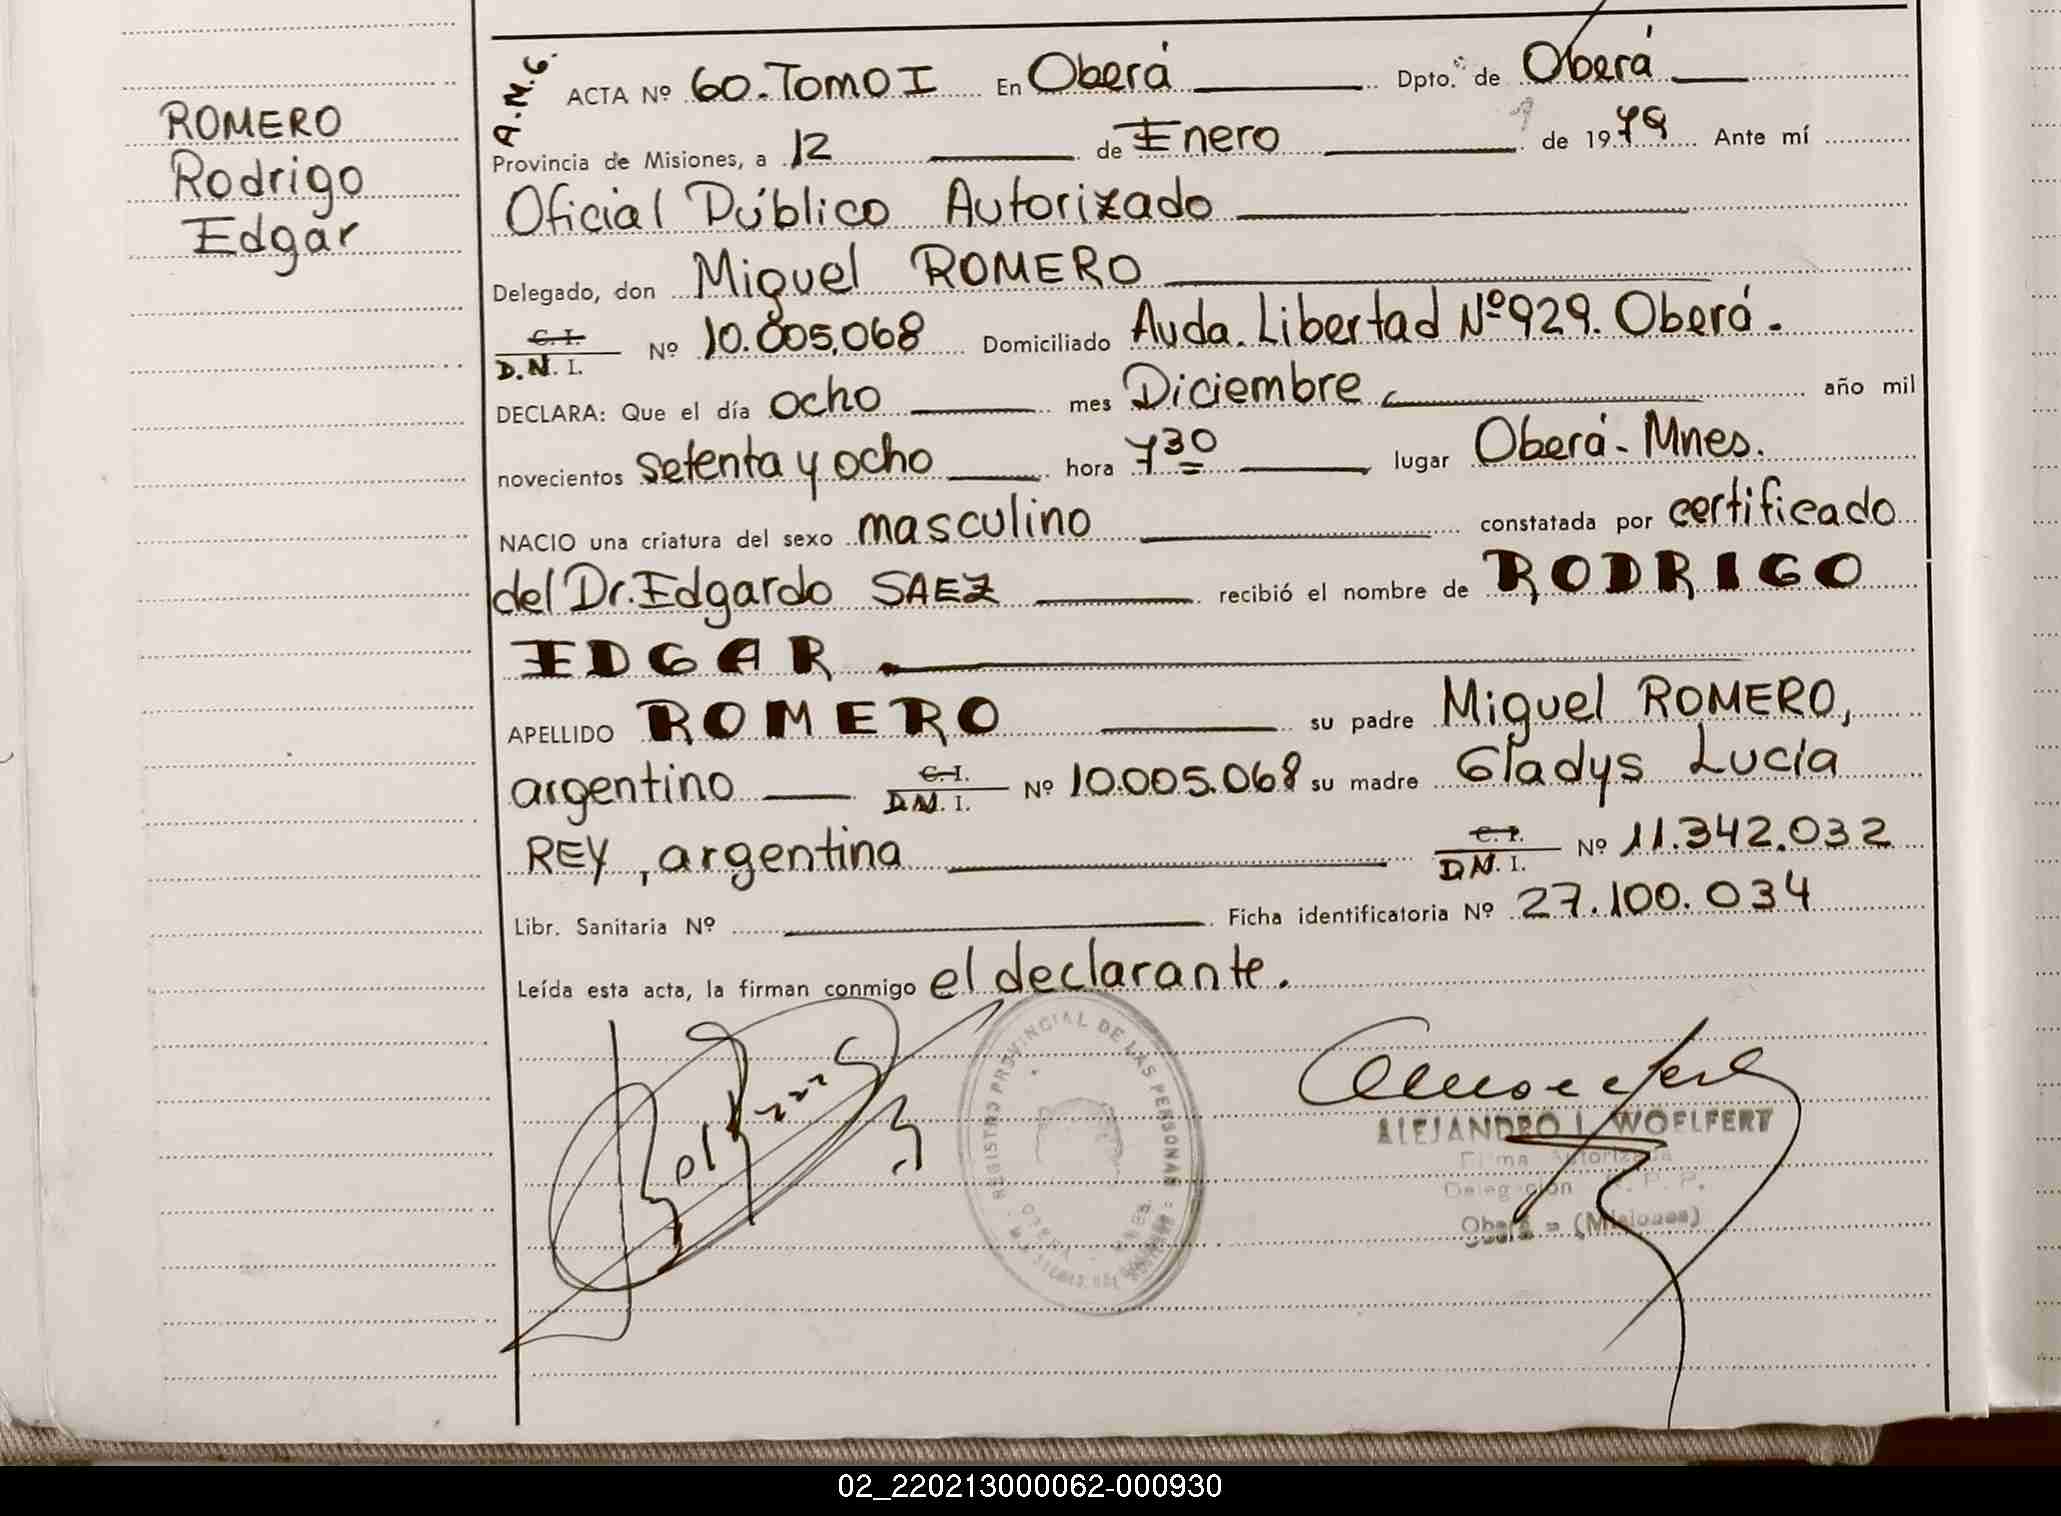 ROMERO
Rodrigo
Edgar
A.M.G.
ACTA Nº 60. Tomo I En Oberá Dpto. de Oberá
Provincia de Misiones, a 12 de Enero de 1979 Ante mí
Oficial Público Autorizado
Delegado, don Miguel ROMERO
C. I.
D.N.I. Nº 10.005.068 Domiciliado Avda. Libertad Nº 929. Oberá.
DECLARA: Que el día ocho mes Diciembre año mil
novecientos setenta y ocho hora 7 30 lugar Oberá - Mnes.
NACIO una criatura del sexo masculino constatada por certificado
del Dr. Edgardo SAEZ recibió el nombre de RODRIGO
EDGAR
APELLIDO ROMERO su padre Miguel ROMERO,
argentino C. I. D.N.I. Nº 10.005.068 su madre Gladys Lucía
REY, argentina C. I. D.N.I. Nº 11.342.032
Libr. Sanitaria Nº Ficha identificatoria Nº 27.100.034
Leída esta acta, la firman conmigo el declarante.
REGISTRO PROVINCIAL DE LAS PERSONAS
ALEJANDRO L. WOELFERT
Firma Autorizada
Delegación R. P. P.
Oberá = (Misiones)
02_220213000062-000930